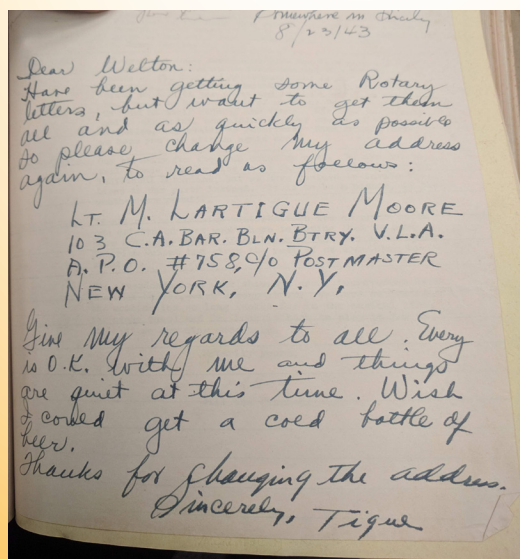 Somewhere in Sicily
8/23/43
Dear Welton:
Have been getting some Rotary
letters, but want to get them
all and as quickly as possible
so please change my address
again, to read as follows:
LT. M. LARTIGUE MOORE
103 C.A. BAR. BLN. BTRY. V.L.A.
A.P.O. #758, c/o POSTMASTER
NEW YORK, N.Y.
Give my regards to all. Every
is O.K. with me and things
are quiet at this time. Wish
I could get a cold bottle of
beer.
Thanks for changing the address.
Sincerely, Tigue